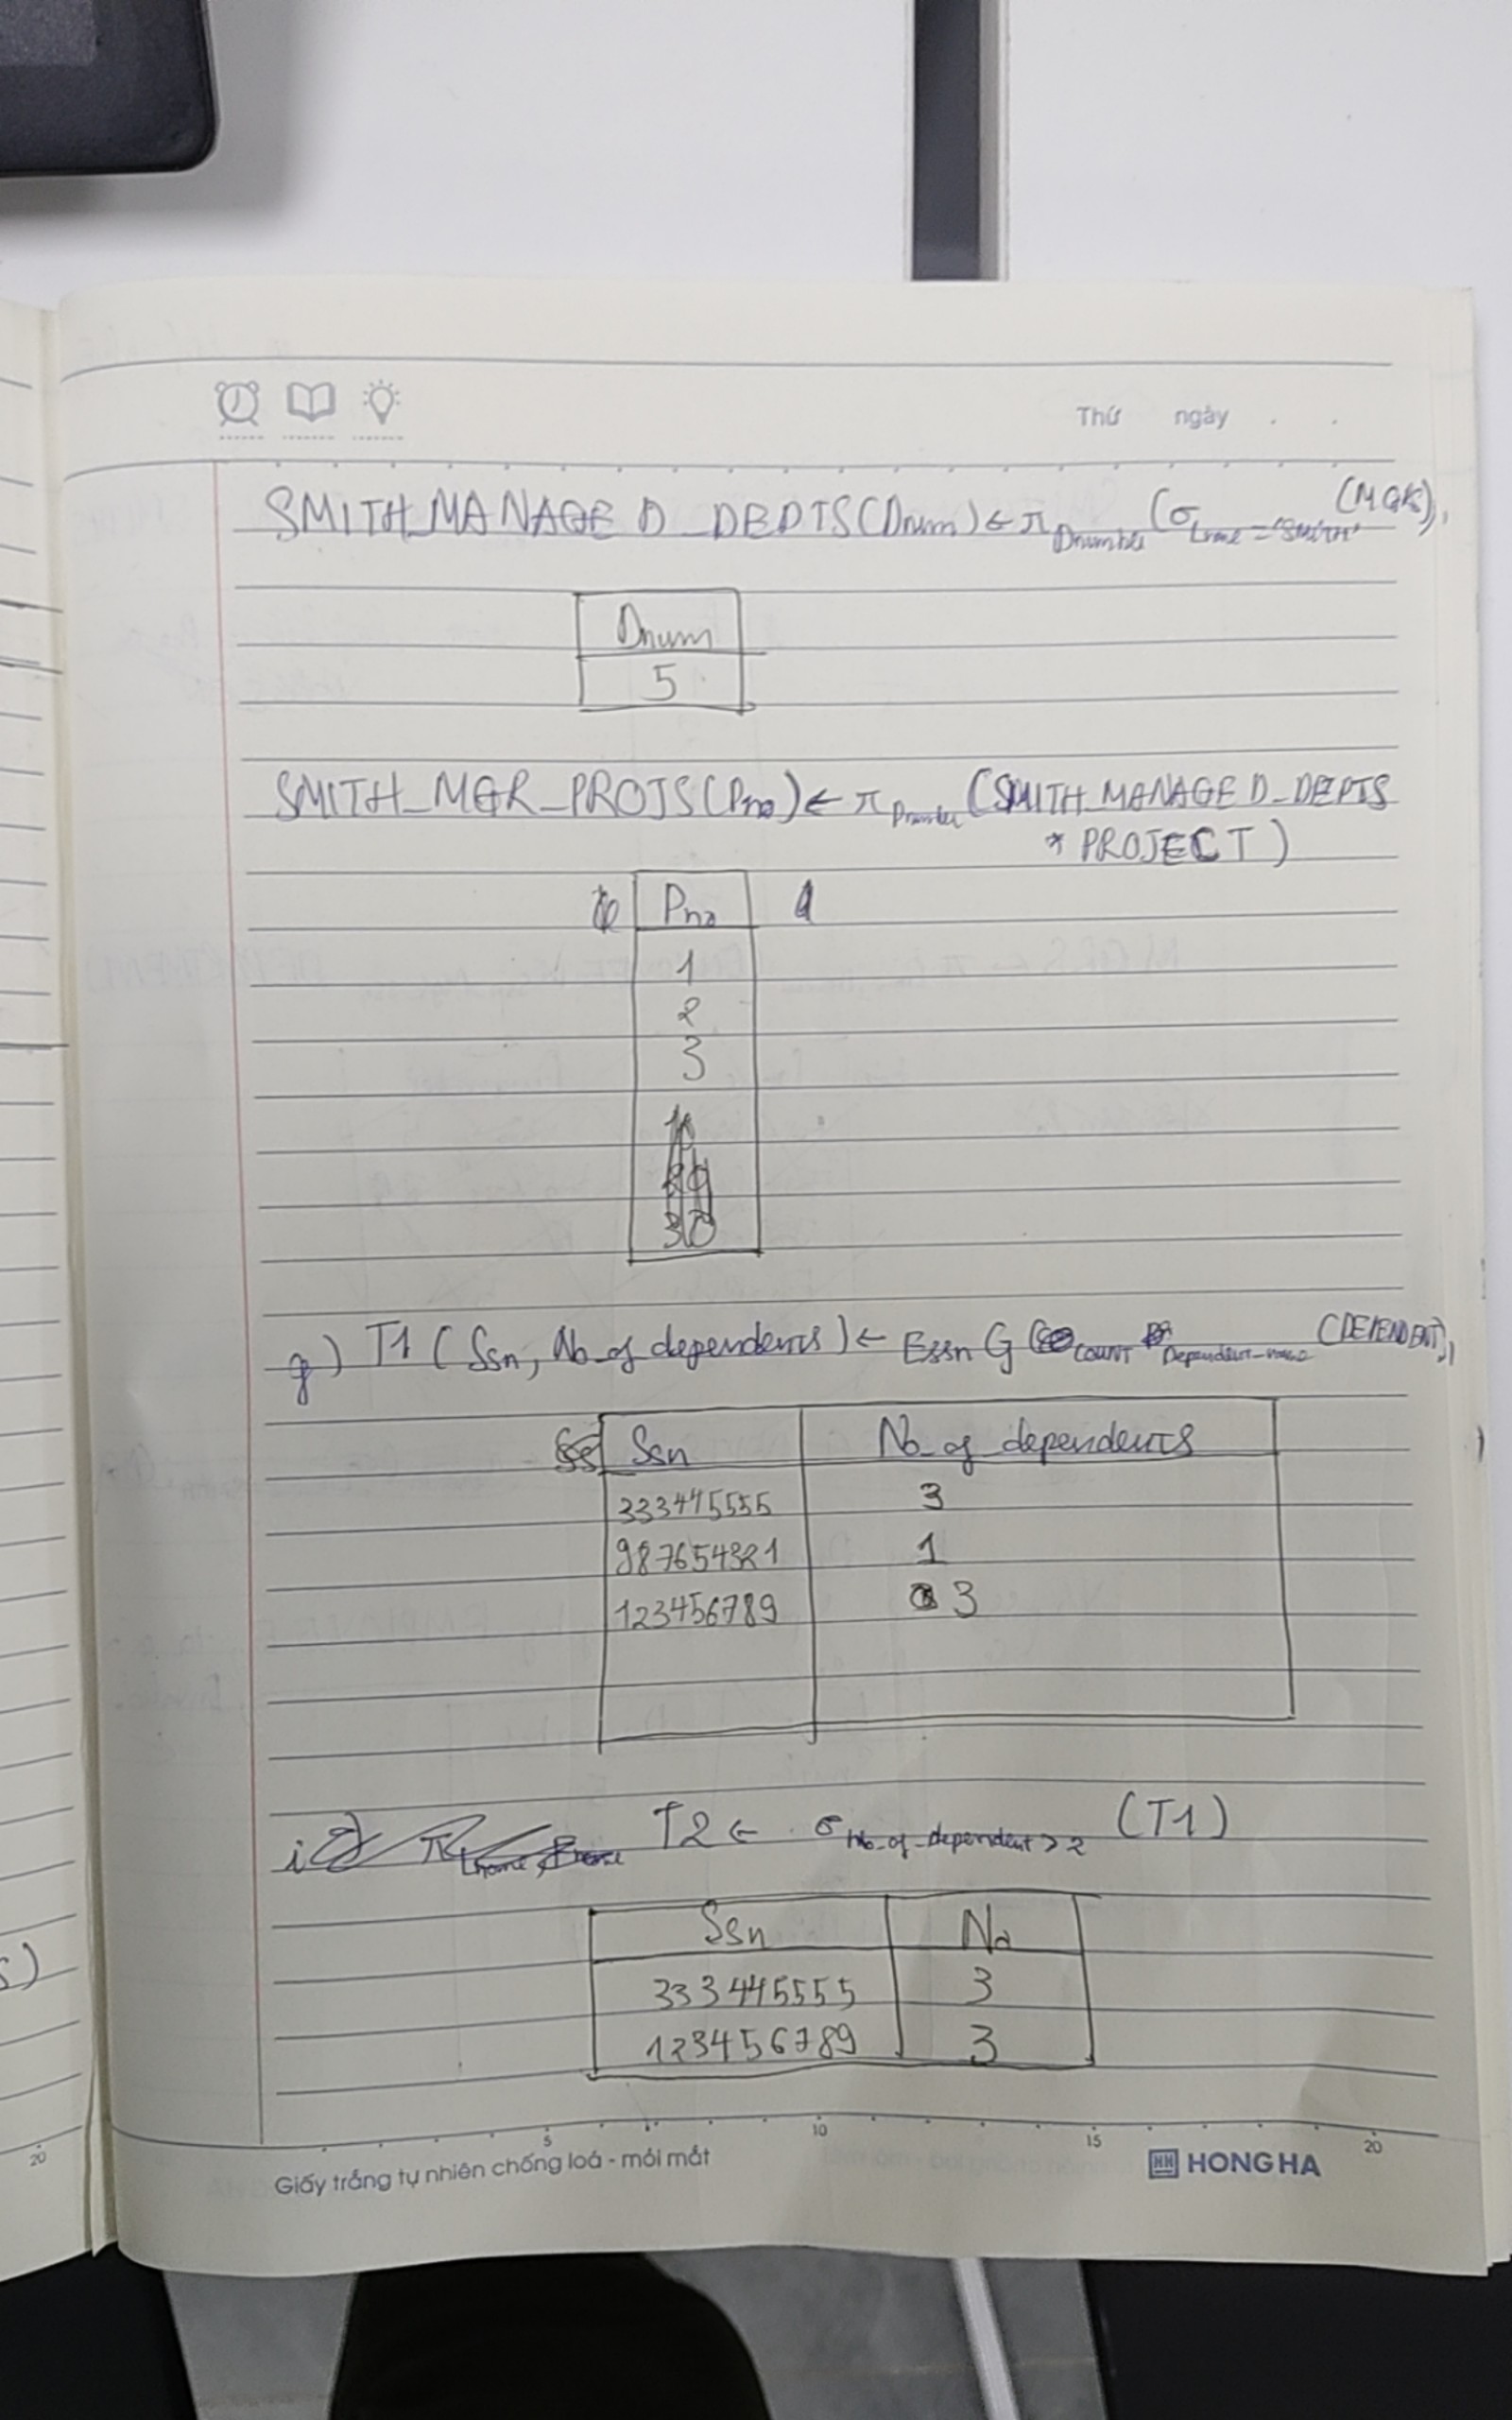 Thứ ngày . .
SMITH_MANAGED_DEPTS(Dnum) ← π Dnumber (σ Lname = 'SMITH' (MGRS),
Dnum
5
SMITH_MGR_PROJS(Pno) ← π Pnumber (SMITH_MANAGED_DEPTS
* PROJECT)
Pno
1
2
3
g) T1 (Ssn, No_of_dependents) ← Essn G COUNT Dependent_name (DEPENDENT),
Ssn No_of_dependents
333445555 3
987654321 1
123456789 3
i T2 ← σ No_of_dependent > 2 (T1)
Ssn No
333445555 3
123456789 3
5 10 15 20
20
Giấy trắng tự nhiên chống loá - mỏi mắt
HH HONG HA